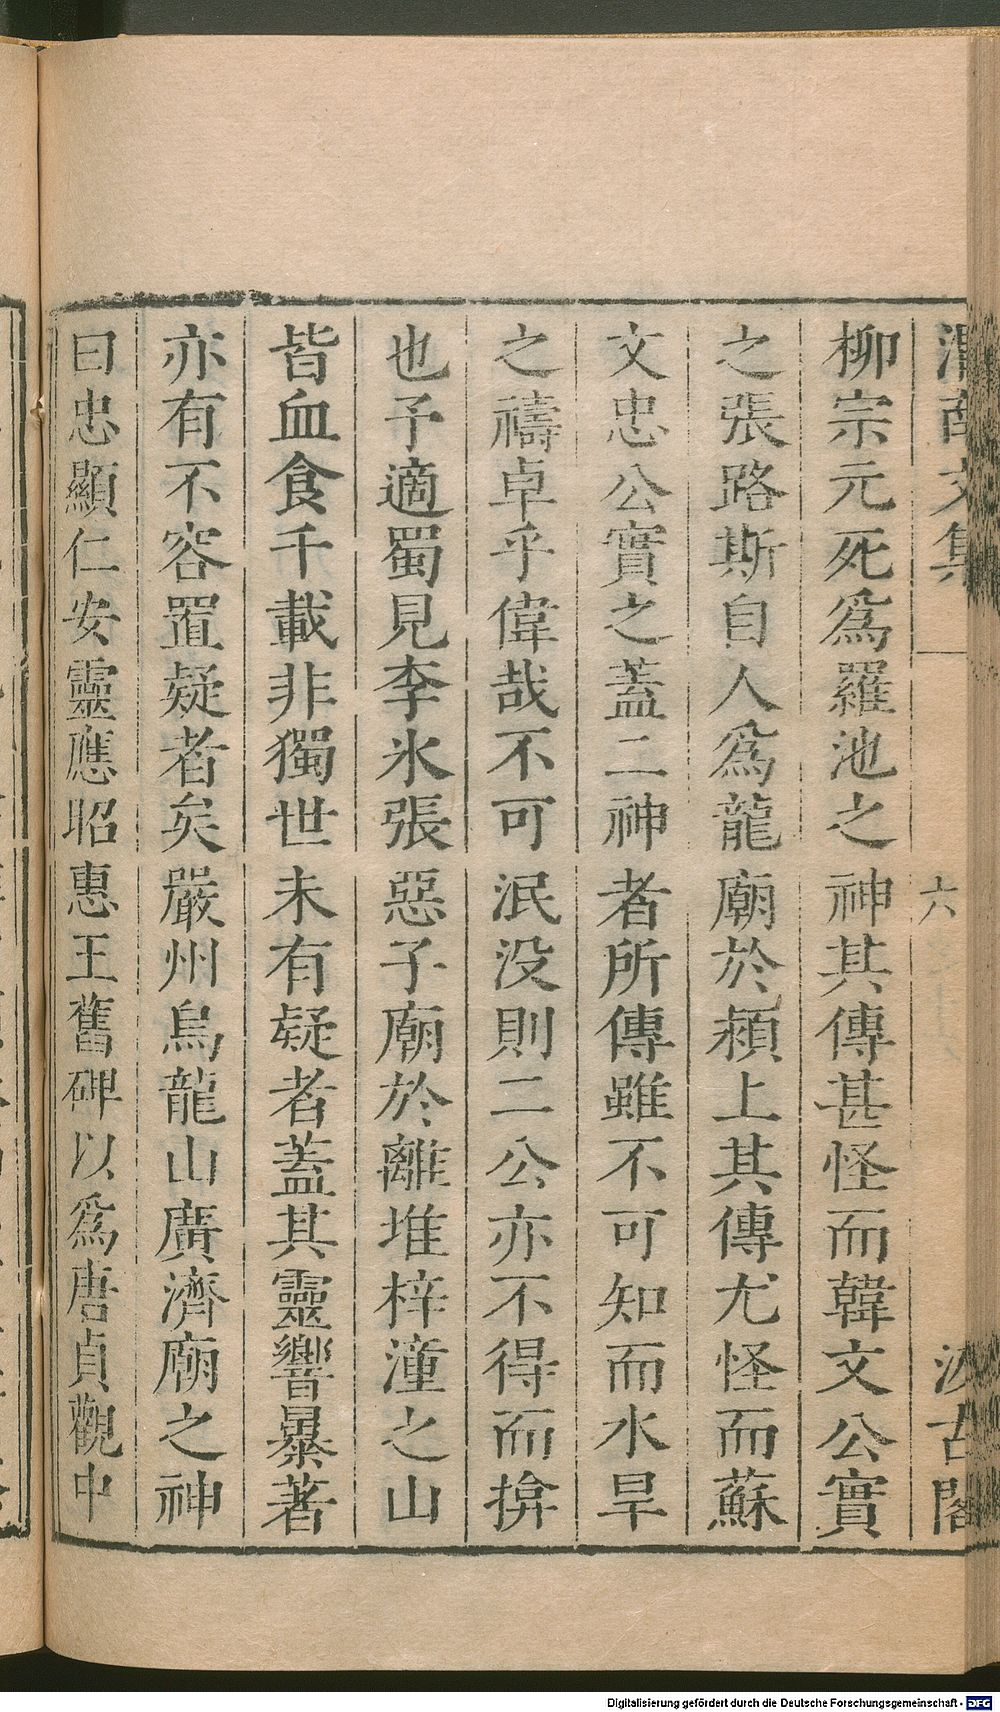 渭南文集 六 汲古閣
柳宗元死爲羅池之神其傳甚怪而韓文公實
之張路斯自人爲龍廟於潁上其傳尤怪而蘇
文忠公實之蓋二神者所傳雖不可知而水旱
之禱卓乎偉哉不可泯没則二公亦不得而揜
也予適蜀見李氷張惡子廟於離堆梓潼之山
皆血食千載非獨世未有疑者蓋其靈響暴著
亦有不容置疑者矣嚴州烏龍山廣濟廟之神
曰忠顯仁安靈應昭惠王舊碑以爲唐貞觀中
Digitalisierung gefördert durch die Deutsche Forschungsgemeinschaft - DFG